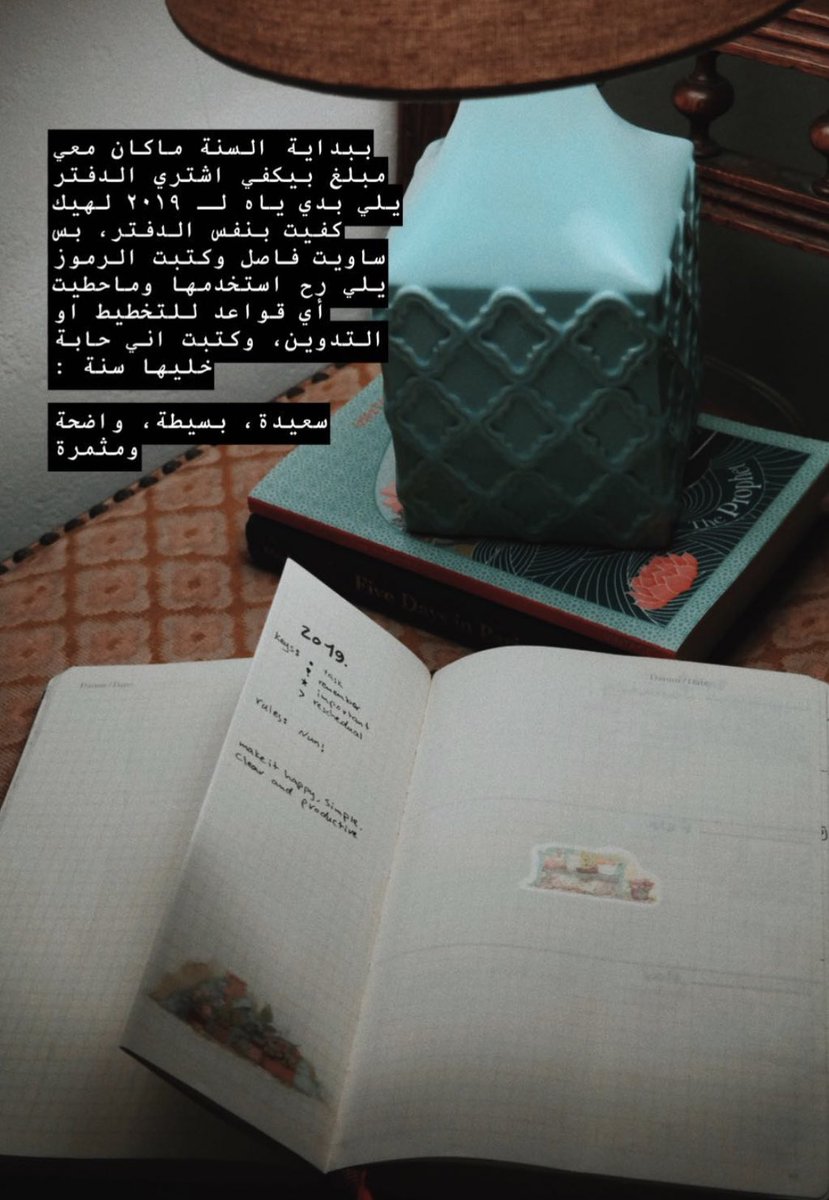 ببداية السنة ماكان معي
مبلغ بيكفي اشتري الدفتر
يلي بدي ياه لـ ٢٠١٩ لهيك
كفيت بنفس الدفتر، بس
ساويت فاصل وكتبت الرموز
يلي رح استخدمها وماحطيت
أي قواعد للتخطيط او
التدوين، وكتبت اني حابة
خليها سنة :
سعيدة، بسيطة، واضحة
ومثمرة
The Prophet
Five Days in
2019.
keys: • task
remember
* important
> reschedual
rules: Nun;
make it happy, simple,
clear and productive
Datum / Date:
Datum / Date: